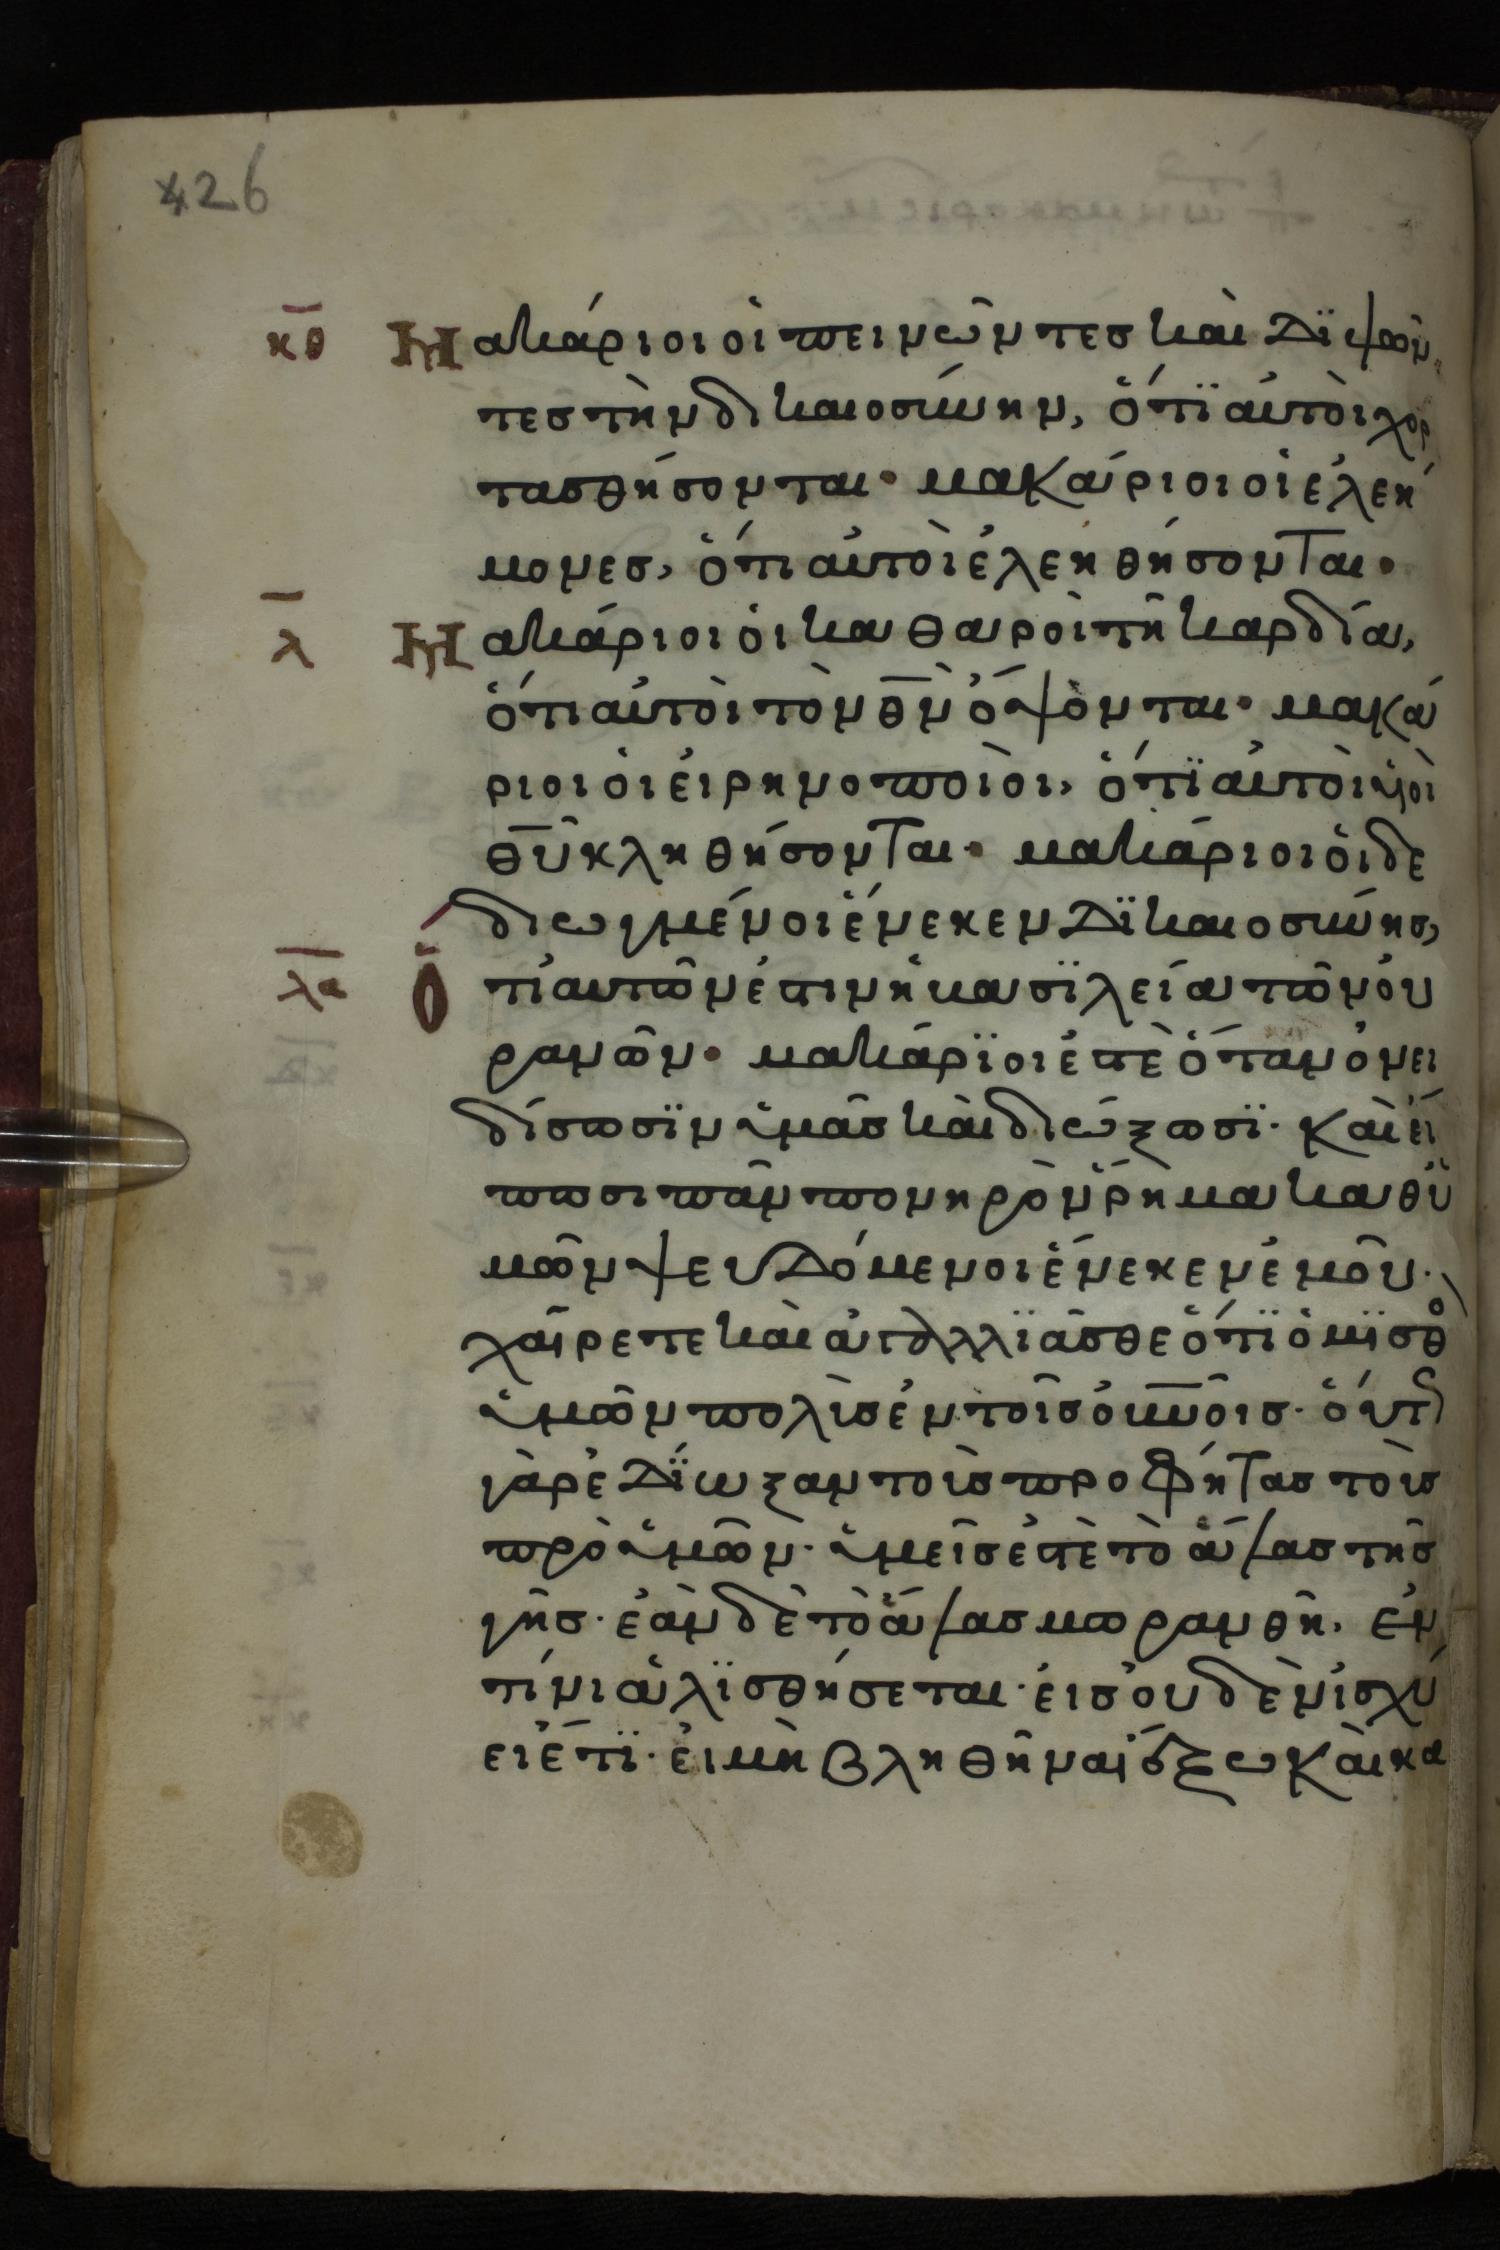 426
κθ Μακάριοι οἱ πεινῶντες καὶ διψῶν
τες τὴν δικαιοσύνην, ὅτι αὐτοὶ χορ
τασθήσονται· μακάριοι οἱ ἐλεή
μονες, ὅτι αὐτοὶ ἐλεηθήσονται·
λ Μακάριοι ὁι καθαροὶ τῆ καρδία,
ὅτι αὐτοὶ τὸν θν ὄψονται· μακά
ριοι ὁι ἐιρηνοποιὸι, ὅτι αὐτοὶ υἱοὶ
θυ κληθήσονται· μακάριοι ὁι δε
διωγμένοι ἕνεκεν δικαιοσύνης,
λα Ὅτι αὐτῶν ἐστιν ἡ βασιλεία τῶν ὀυ
ρανῶν· μακάριοι ἐστὲ ὅταν ὀνει
δίσωσιν ὑμᾶς καὶ διώξωσι· καὶ εἴ
πωσι πᾶν πονηρὸν ῥῆμα καθ ὑ
μῶν ψευδόμενοι ἕνεκεν ἐμοῦ·
χαίρετε καὶ ἀγαλλιᾶσθε ὅτι ὁ μισθὸ
ὑμῶν πολὺς ἐν τοῖς ὀυνοῖς· ὅυτω
γὰρ ἐδίωξαν τοὺς προφήτας τοὺς
πρὸ ὑμῶν· ὑμεῖς ἐστὲ τὸ ἅλας τῆς
γῆς· ἐὰν δὲ τὸ ἅλας μωρανθῆ, ἐν
τίνι ἁλισθήσεται· ἐις ὀυδὲν ἰσχύ
ει ἔτι· ἐι μὴ βληθῆναι ἔξω καὶ κα